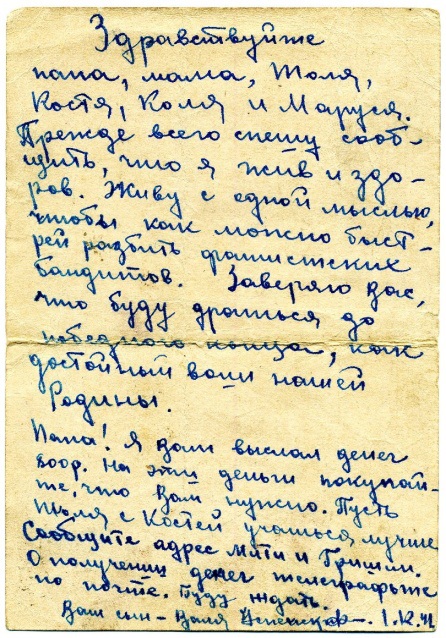 Здравствуйте
папа, мама, Толя,
Костя, Коля и Маруся.
Прежде всего спешу сооб-
щить, что я жив и здо-
ров. Живу с одной мыслью,
чтобы как можно быст-
рей разбить фашистских
бандитов. Заверяю Вас,
что буду драться до
победного конца, как
достойный воин нашей
Родины.
Папа! Я Вам выслал денег
800р. На эти деньги покупай-
те, что Вам нужно. Пусть
Толя с Костей учаться лучше
Сообщите адрес Мити и Гриши.
О получении денег телеграфьте
по почте. Буду ждать.
Ваш сын – Валя 1.IX.41